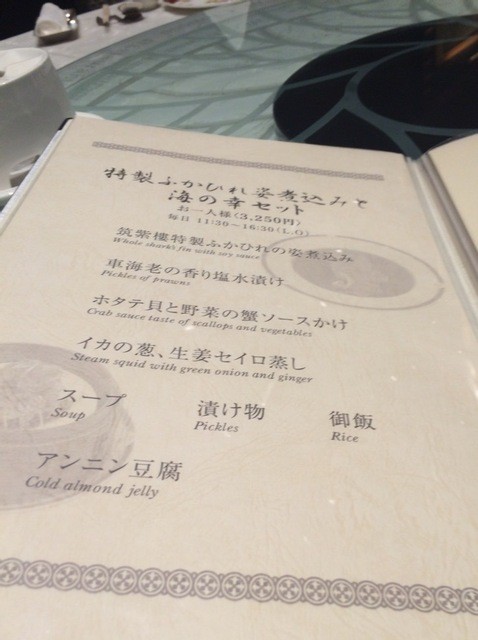 特製ふかひれ姿煮込みと
海の幸セット
お一人様〈3,250円〉
毎日 11:30～16:30(L.O)
筑紫樓特製ふかひれの姿煮込み
Whole shark's fin with soy sauce
車海老の香り塩水漬け
Pickles of prawns
ホタテ貝と野菜の蟹ソースかけ
Crab sauce taste of scallops and vegetables
イカの葱、生姜セイロ蒸し
Steam squid with green onion and ginger
スープ 漬け物 御飯
Soup Pickles Rice
アンニン豆腐
Cold almond jelly